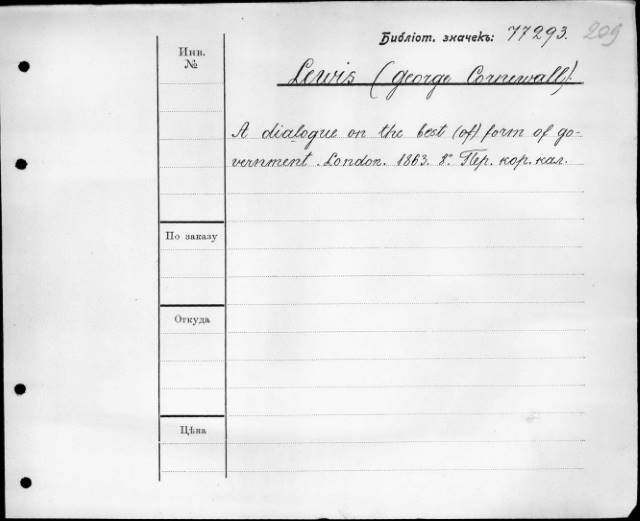 Библіот. значекъ: 77293. 209
Инв.
№
Lewis (George Cornewall).
A dialogue on the best (of) form of go-
vernment. London. 1863. 8º. Пер. кор. кал.
По заказу
Откуда
Цѣна